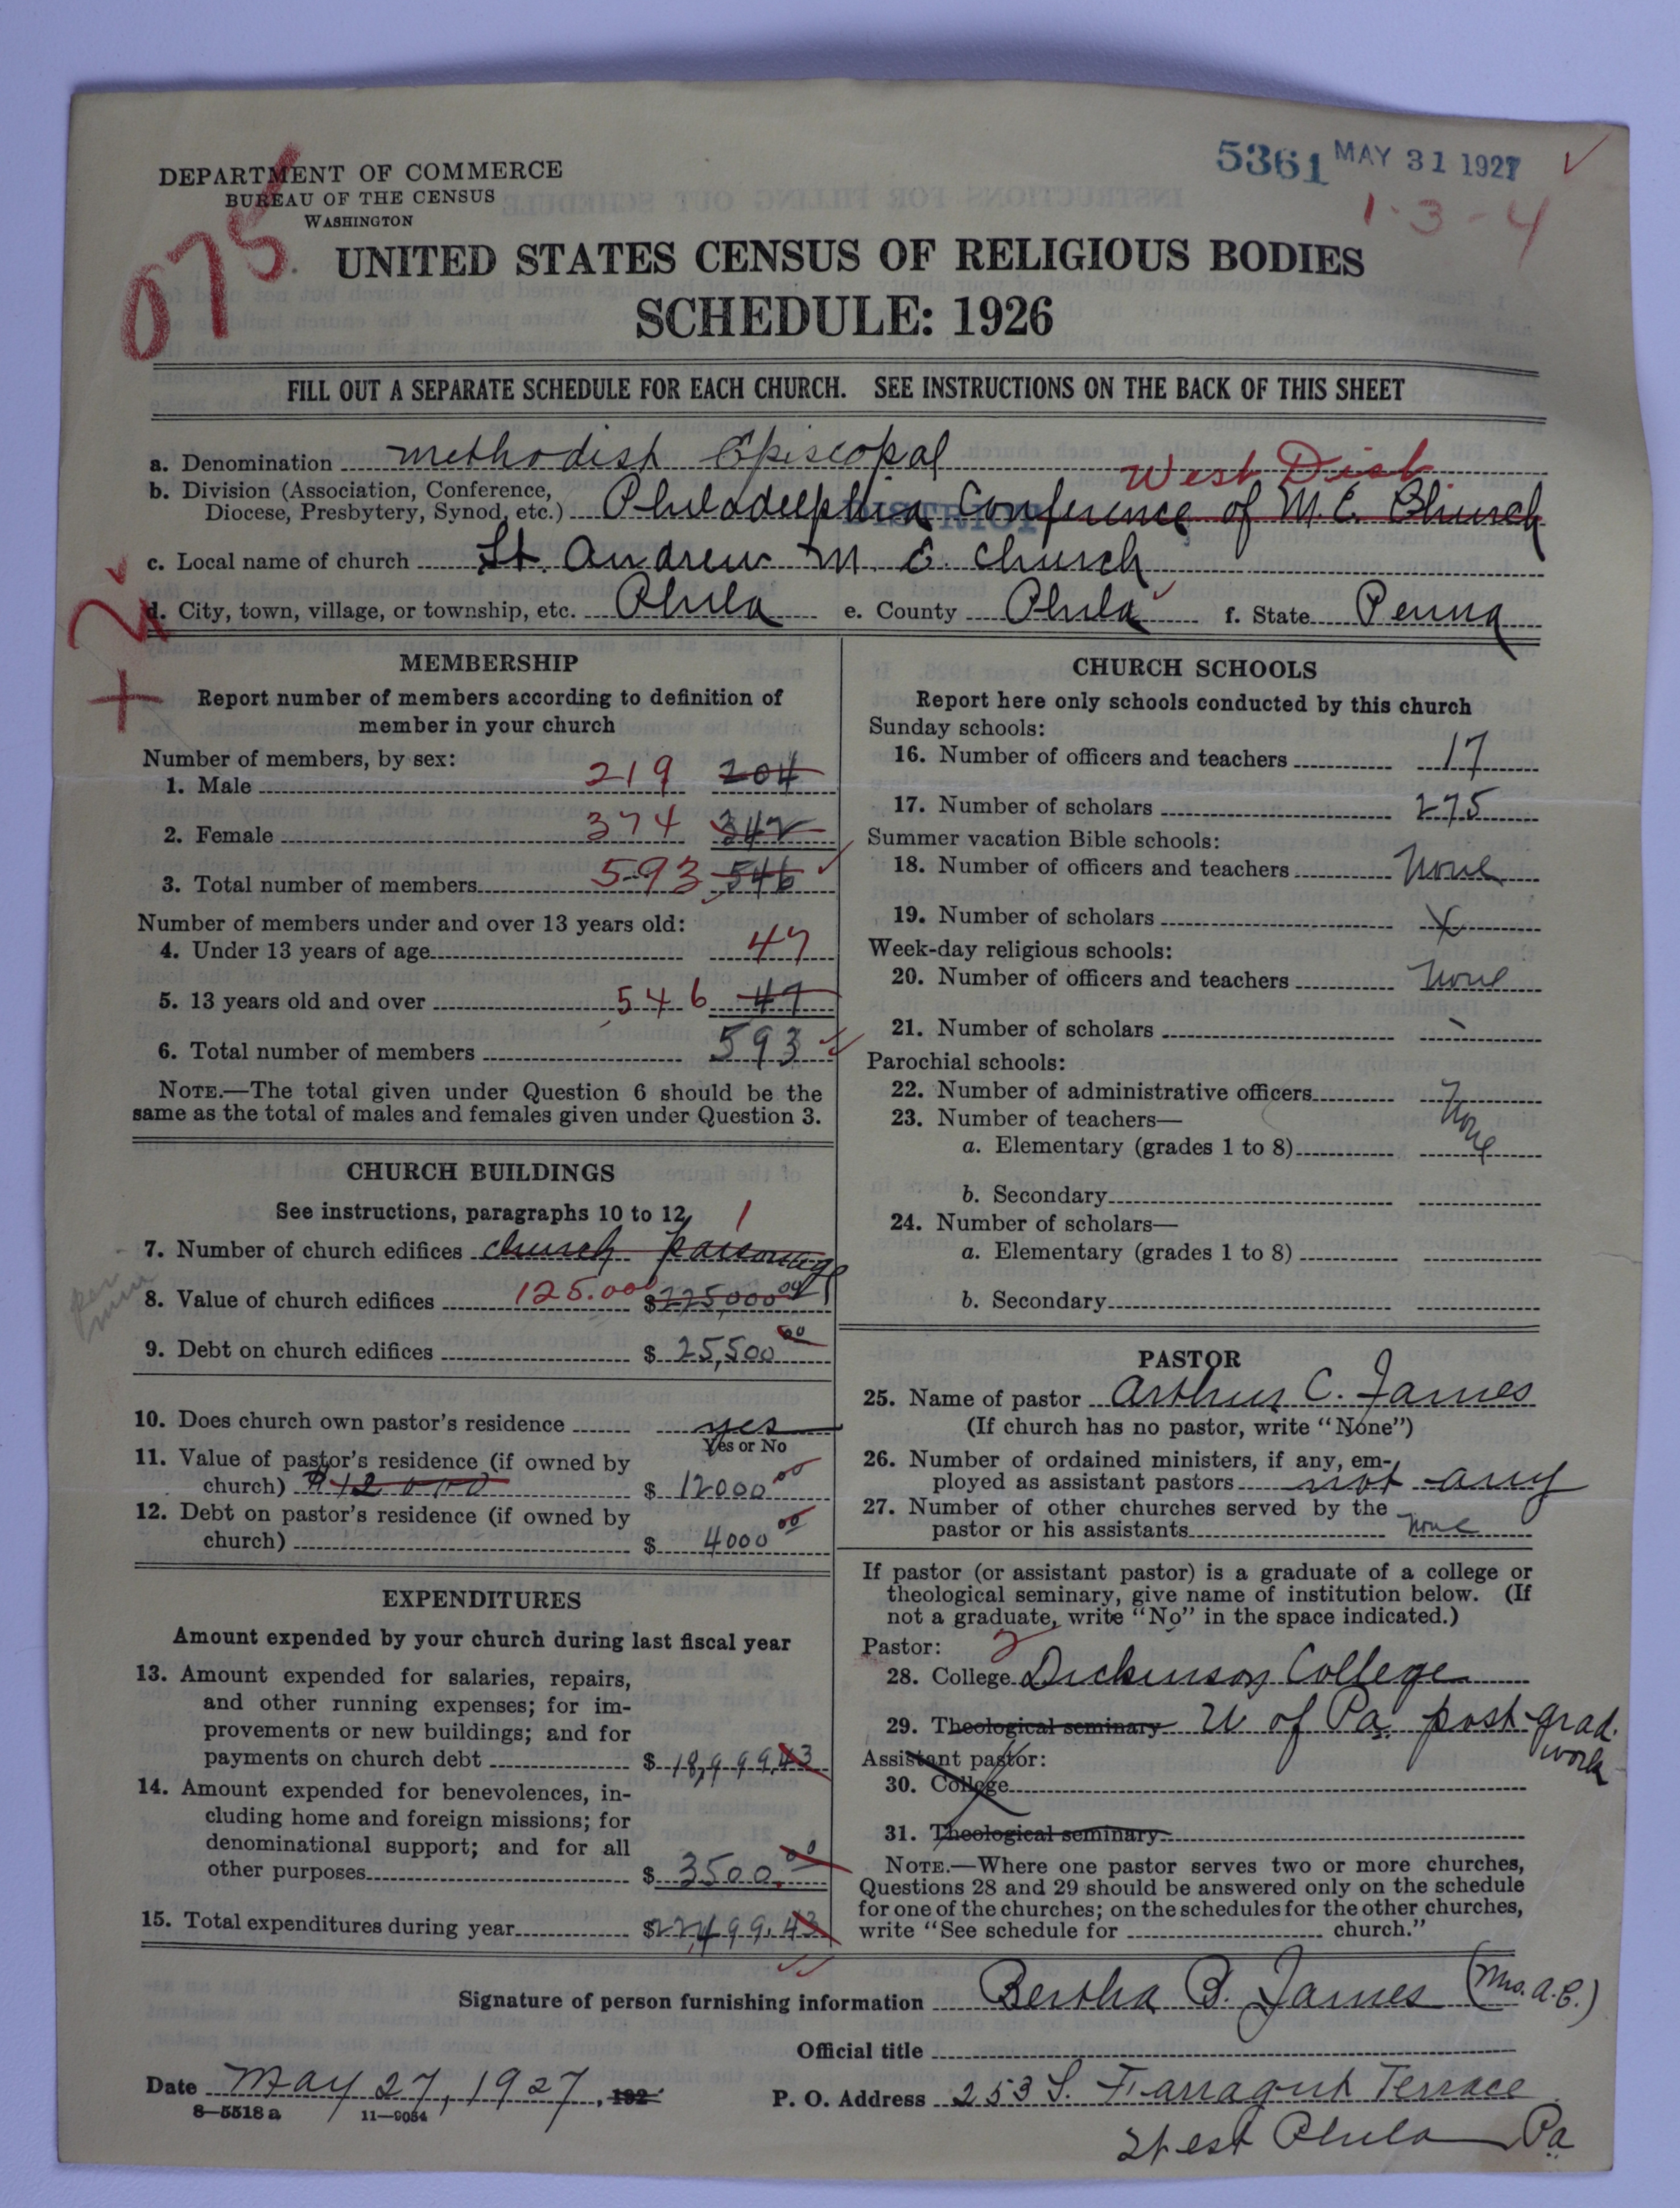 5361 MAY 31 1927
1-3-4
DEPARTMENT OF COMMERCE
BUREAU OF THE CENSUS
WASHINGTON
075
UNITED STATES CENSUS OF RELIGIOUS BODIES
SCHEDULE: 1926
FILL OUT A SEPARATE SCHEDULE FOR EACH CHURCH. SEE INSTRUCTIONS ON THE BACK OF THIS SHEET
a. Denomination Methodist Episcopal
West Dist.
b. Division (Association, Conference,
Diocese, Presbytery, Synod, etc.) Philadelphia Conference of M.E. Church
DISTRICT
c. Local name of church St. Andrew M. E. Church
d. City, town, village, or township, etc. Phila e. County Phila f. State Penna
+ 2
MEMBERSHIP
Report number of members according to definition of
member in your church
Number of members, by sex:
1. Male 219 204
2. Female 374 342
3. Total number of members 593 546
Number of members under and over 13 years old:
4. Under 13 years of age 47
5. 13 years old and over 546 47
6. Total number of members 593
NOTE.—The total given under Question 6 should be the
same as the total of males and females given under Question 3.
CHURCH BUILDINGS
See instructions, paragraphs 10 to 12
7. Number of church edifices church parsonage 1
8. Value of church edifices 125.000 $225,000 00
9. Debt on church edifices $ 25,500 00
10. Does church own pastor's residence yes
Yes or No
11. Value of pastor's residence (if owned by
church) $12000 $ 12000 00
12. Debt on pastor's residence (if owned by
church) $ 4000 00
EXPENDITURES
Amount expended by your church during last fiscal year
13. Amount expended for salaries, repairs,
and other running expenses; for im-
provements or new buildings; and for
payments on church debt $ 18,999.43
14. Amount expended for benevolences, in-
cluding home and foreign missions; for
denominational support; and for all
other purposes $ 3500.00
15. Total expenditures during year $22,499.43
CHURCH SCHOOLS
Report here only schools conducted by this church
Sunday schools:
16. Number of officers and teachers 17
17. Number of scholars 275
Summer vacation Bible schools:
18. Number of officers and teachers None
19. Number of scholars x
Week-day religious schools:
20. Number of officers and teachers None
21. Number of scholars
Parochial schools:
22. Number of administrative officers
23. Number of teachers— None
a. Elementary (grades 1 to 8)
b. Secondary
24. Number of scholars—
a. Elementary (grades 1 to 8)
b. Secondary
PASTOR
25. Name of pastor Arthur C. James
(If church has no pastor, write "None")
26. Number of ordained ministers, if any, em-
ployed as assistant pastors not any
27. Number of other churches served by the
pastor or his assistants None
If pastor (or assistant pastor) is a graduate of a college or
theological seminary, give name of institution below. (If
not a graduate, write "No" in the space indicated.)
Pastor: 2
28. College Dickinson College
29. Theological seminary U of Pa. post-grad.
work
Assistant pastor:
30. College
31. Theological seminary
NOTE.—Where one pastor serves two or more churches,
Questions 28 and 29 should be answered only on the schedule
for one of the churches; on the schedules for the other churches,
write "See schedule for church."
Signature of person furnishing information Bertha B. James (Mrs. A.C.)
Official title
Date May 27, 1927, 192
P. O. Address 253 S. Farragut Terrace
8—5518 a 11—9054
West Phila Pa